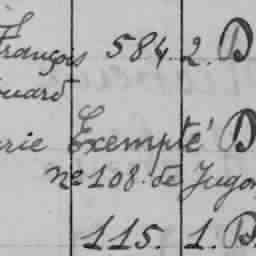 François 584. 2. D
ouard
rie Exempté D
nº 108. de Jugon
115. 1. B